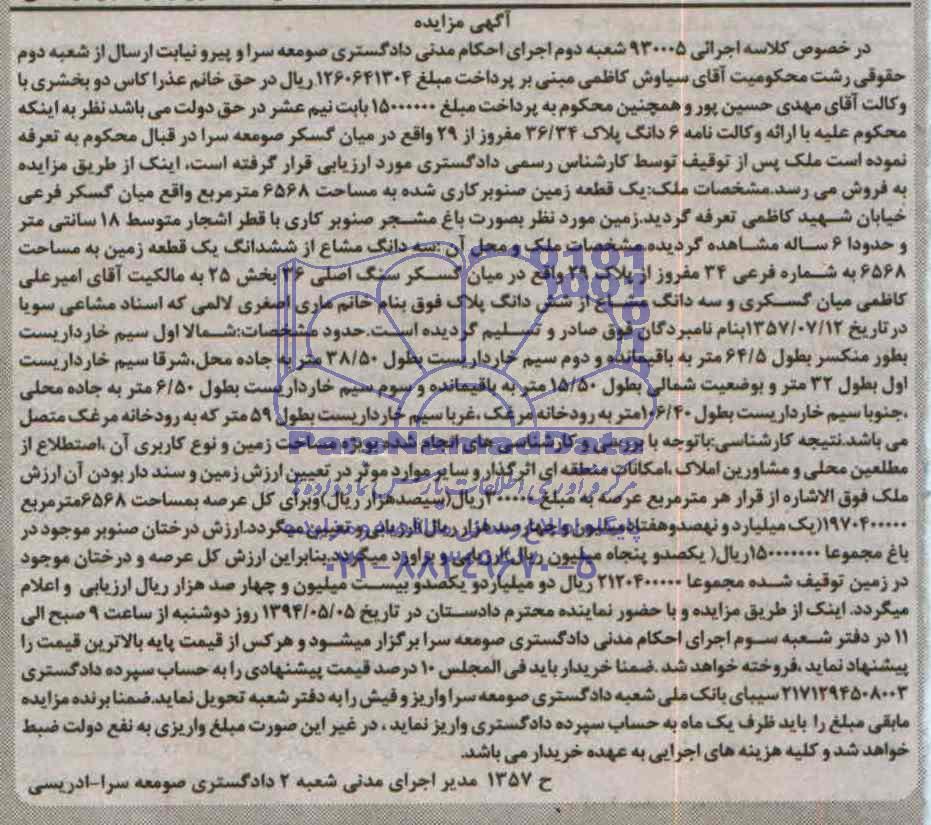 آگهی مزایده
در خصوص کلاسه اجرائی ۹۳۰۰۰۵ شعبه دوم اجرای احکام مدنی دادگستری صومعه سرا و پیرو نیابت ارسال از شعبه دوم
حقوقی رشت محکومیت آقای سیاوش کاظمی مبنی بر پرداخت مبلغ ۱۲۶۰۶۴۱۳۰۴ ریال در حق خانم عذرا کاس دو بخشری با
وکالت آقای مهدی حسین پور و همچنین محکوم به پرداخت مبلغ ۱۵۰۰۰۰۰۰ بابت نیم عشر در حق دولت می باشد نظر به اینکه
محکوم علیه با ارائه وکالت نامه ۶ دانگ پلاک ۳۶/۳۴ مفروز از ۲۹ واقع در میان گسکر صومعه سرا در قبال محکوم به تعرفه
نموده است ملک پس از توقیف توسط کارشناس رسمی دادگستری مورد ارزیابی قرار گرفته است، اینک از طریق مزایده
به فروش می رسد.مشخصات ملک:یک قطعه زمین صنوبرکاری شده به مساحت ۶۵۶۸ مترمربع واقع میان گسکر فرعی
خیابان شهید کاظمی تعرفه گردید.زمین مورد نظر بصورت باغ مشجر صنوبر کاری با قطر اشجار متوسط ۱۸ سانتی متر
و حدودا ۶ ساله مشاهده گردیده.مشخصات ملک و محل آن :سه دانگ مشاع از ششدانگ یک قطعه زمین به مساحت
۶۵۶۸ به شماره فرعی ۳۴ مفروز از پلاک ۲۹ واقع در میان گسکر سنگ اصلی ۳۶ بخش ۲۵ به مالکیت آقای امیرعلی
کاظمی میان گسکری و سه دانگ مشاع از شش دانگ پلاک فوق بنام خانم ماری اصغری لالمی که اسناد مشاعی سویا
در تاریخ ۱۳۵۷/۰۷/۱۲بنام نامبردگان فوق صادر و تسلیم گردیده است.حدود مشخصات:شمالا اول سیم خارداریست
بطور منکسر بطول ۶۴/۵ متر به باقیمانده و دوم سیم خارداریست بطول ۳۸/۵۰ متر به جاده محل،شرقا سیم خارداریست
اول بطول ۳۲ متر و بوضعیت شمالی بطول ۱۵/۵۰ متر به باقیمانده و سوم سیم خارداریست بطول ۶/۵۰ متر به جاده محلی
،جنوبا سیم خارداریست بطول ۱۰۶/۴۰متر به رودخانه مرغک ،غربا سیم خارداریست بطول ۵۹ متر که به رودخانه مرغک متصل
می باشد.نتیجه کارشناسی:باتوجه با بررسی و کارشناسی های انجام شده بویژه مساحت زمین و نوع کاربری آن ،استطلاع از
مطلعین محلی و مشاورین املاک ،امکانات منطقه ای اثرگذار و سایر موارد موثر در تعیین ارزش زمین و سند دار بودن آن ارزش
ملک فوق الاشاره از قرار هر مترمربع عرصه به مبلغ ریال(سیصدهزار ریال)وبرای کل عرصه بمساحت ۶۵۶۸مترمربع
۱۹۷۰۴۰۰۰۰۰(یک میلیارد و نهصدوهفتادمیلیون و چهار صدهزار ریال ارزیابی و تعیین میگردد.ارزش درختان صنوبر موجود در
باغ مجموعا ۱۵۰۰۰۰۰۰۰ریال( یکصدو پنجاه میلیون ریال)ارزیابی و براورد میگردد.بنابراین ارزش کل عرصه و درختان موجود
در زمین توقیف شده مجموعا ۲۱۲۰۴۰۰۰۰۰ ریال دو میلیاردو یکصدو بیست میلیون و چهار صد هزار ریال ارزیابی و اعلام
میگردد. اینک از طریق مزایده و با حضور نماینده محترم دادستان در تاریخ ۱۳۹۴/۰۵/۰۵ روز دوشنبه از ساعت ۹ صبح الی
۱۱ در دفتر شعبه سوم اجرای احکام مدنی دادگستری صومعه سرا برگزار میشود و هرکس از قیمت پایه بالاترین قیمت را
پیشنهاد نماید ،فروخته خواهد شد .ضمنا خریدار باید فی المجلس ۱۰ درصد قیمت پیشنهادی را به حساب سپرده دادگستری
۲۱۷۱۲۹۴۵۰۸۰۰۳ سیبای بانک ملی شعبه دادگستری صومعه سرا واریز و فیش را به دفتر شعبه تحویل نماید.ضمنا برنده مزایده
مابقی مبلغ را باید ظرف یک ماه به حساب سپرده دادگستری واریز نماید ، در غیر این صورت مبلغ واریزی به نفع دولت ضبط
خواهد شد و کلیه هزینه های اجرایی به عهده خریدار می باشد.
ح ۱۳۵۷ مدیر اجرای مدنی شعبه ۲ دادگستری صومعه سرا-ادریسی
ParsNamadData
۰۲۱-۸۸۳۴۹۶۷۰-۵